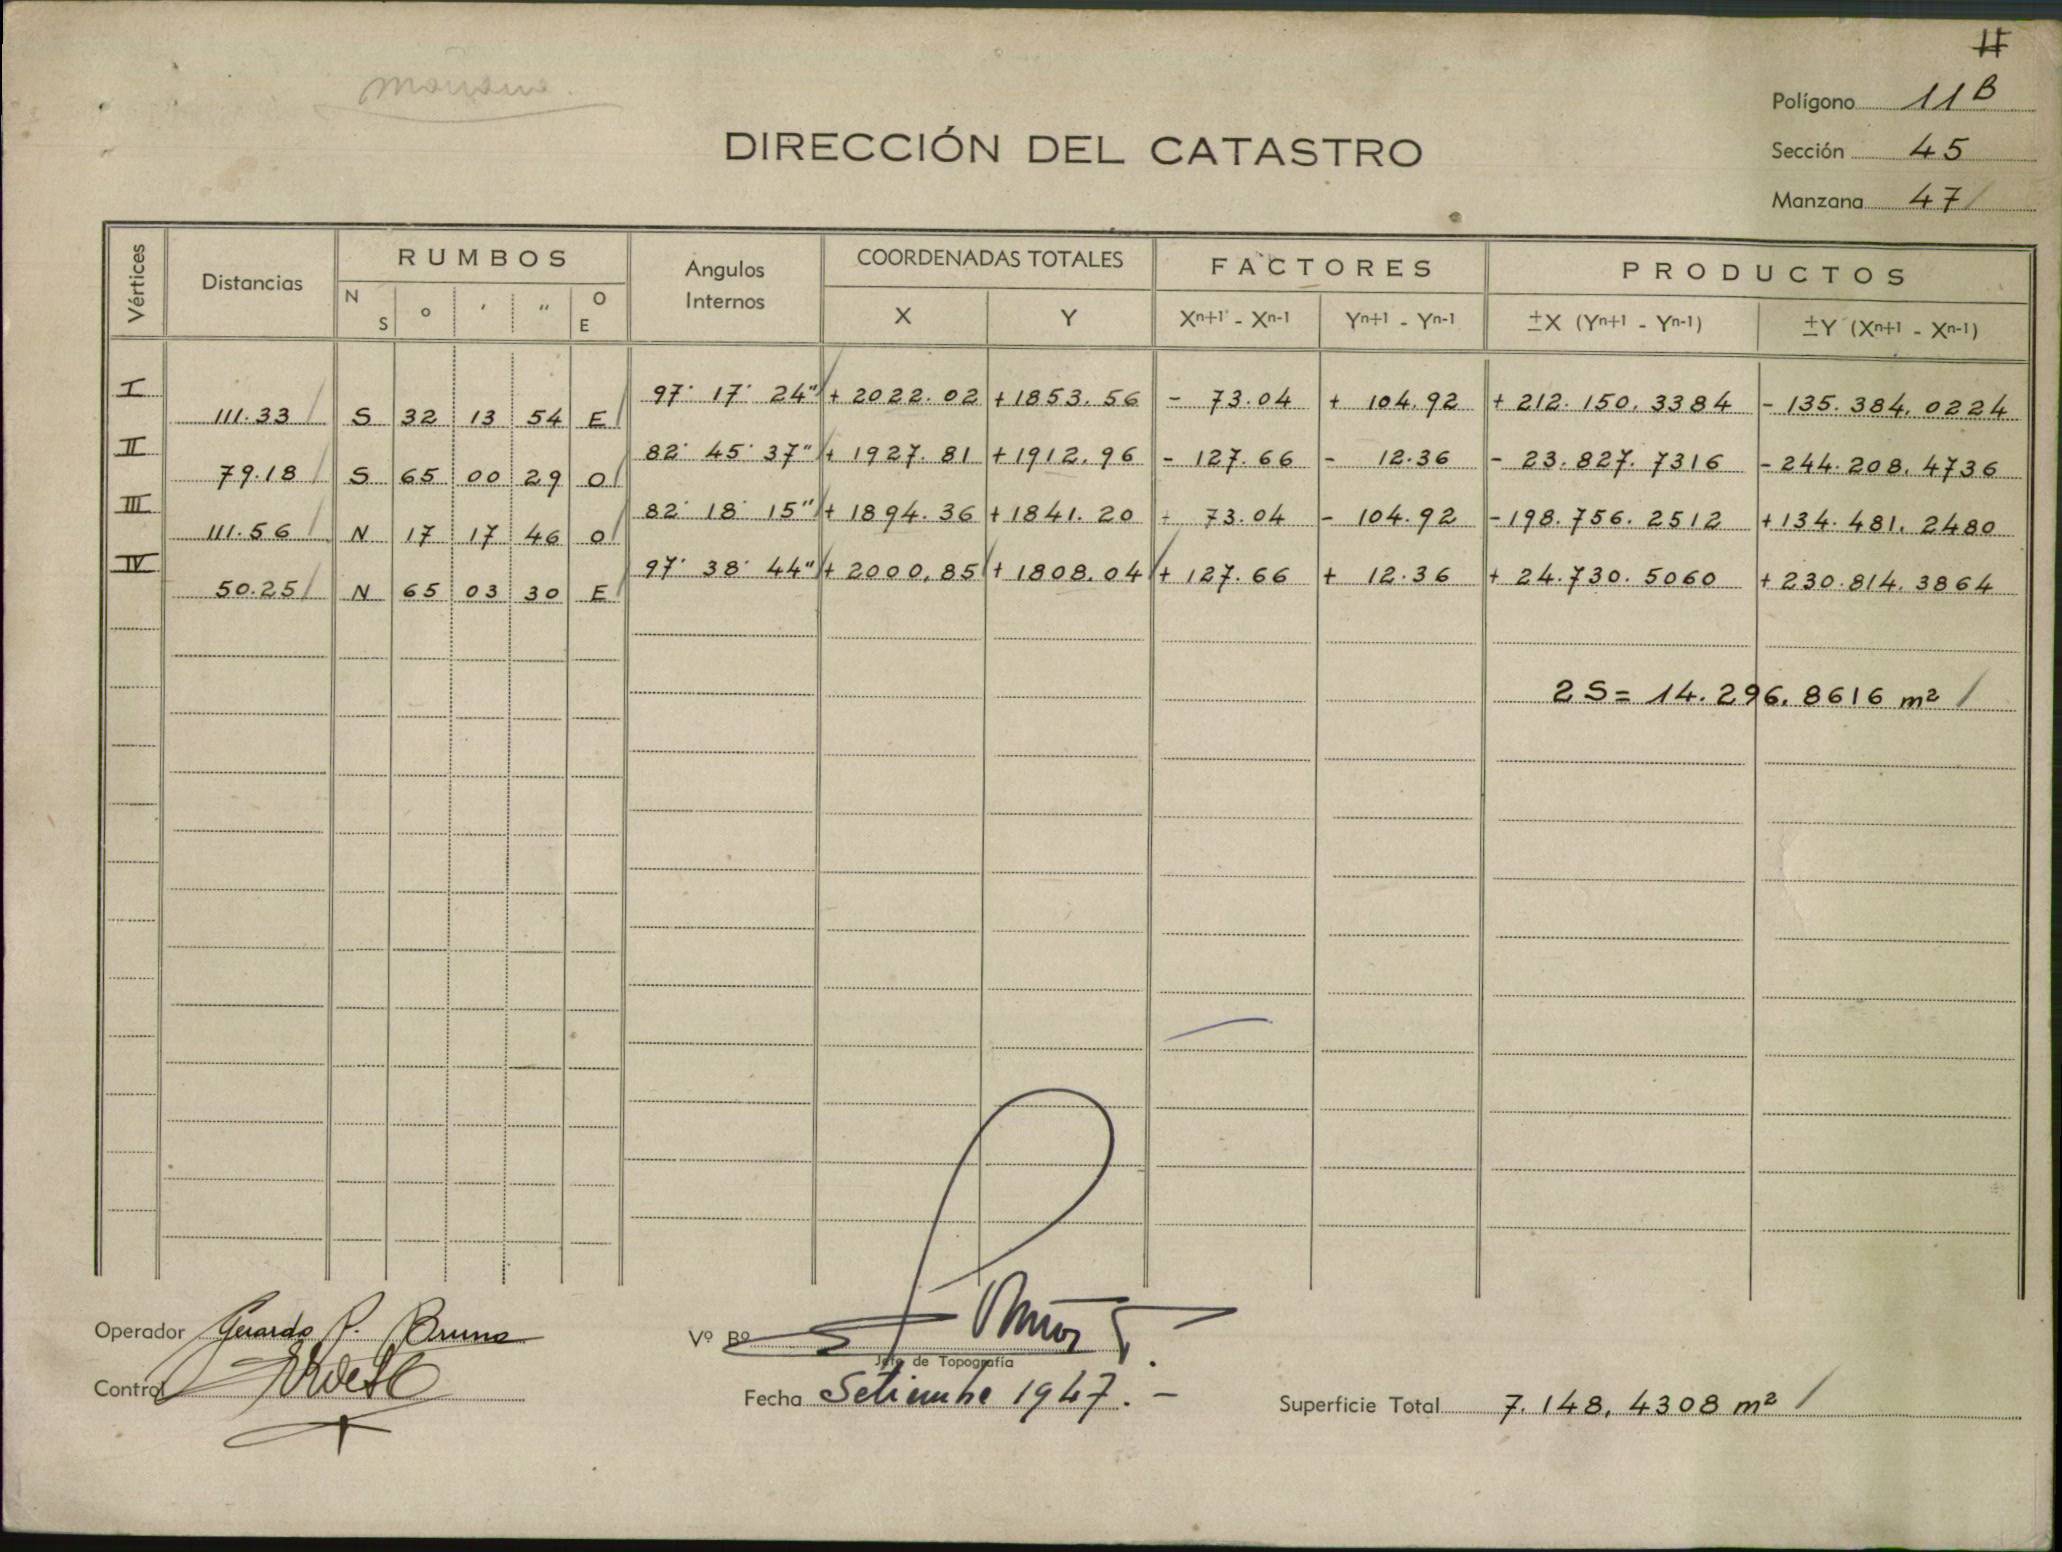 II
Manzana.
Polígono 11 B
DIRECCIÓN DEL CATASTRO
Sección 45
Manzana 47
Vértices Distancias RUMBOS Angulos Internos COORDENADAS TOTALES FACTORES PRODUCTOS
N S ° ' " O E X Y Xn+1 - Xn-1 Yn+1 - Yn-1 ±X (Yn+1 - Yn-1) ±Y (Xn+1 - Xn-1)
I 97° 17' 24" + 2022.02 + 1853.56 - 73.04 + 104.92 + 212.150,3384 - 135.384,0224
111.33 S 32 13 54 E
II 82° 45' 37" + 1927.81 + 1912.96 - 127.66 - 12.36 - 23.827.7316 - 244.208,4736
79.18 S 65 00 29 O
III 82° 18' 15" + 1894.36 + 1841.20 + 73.04 - 104.92 - 198.756.2512 + 134.481,2480
111.56 N 17 17 46 O
IV 97° 38' 44" + 2000,85 + 1808.04 + 127.66 + 12.36 + 24.730.5060 + 230.814.3864
50.25 N 65 03 30 E
2 S = 14.296,8616 m²
Operador Gerardo P. Bruno
Vº Bº Muñoz
Jefe de Topografía
Control
Fecha Setiembre 1947.-
Superficie Total 7.148,4308 m²